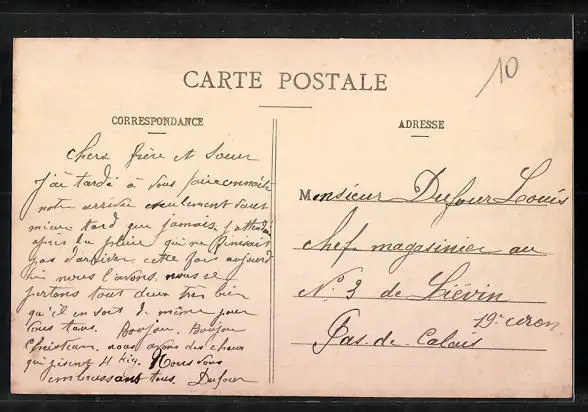 10
CARTE POSTALE
CORRESPONDANCE
ADRESSE
Chers frère et Soeur
j'ai tardé à vous faire connaître
notre arrivée seulement vaut
mieux tard que jamais. j'attendais
après la pluie qui ne finissait
pas d'arriver cette fois aujourd
hui nous l'avons. nous se
portons tout deux très bien
qu'il en soit de même pour
vous tous. Bonjour. Bonjour
Christian. nous avons des choux
qui pèsent 4 kig. Nous vous
embrassons tous. Dufour
Monsieur Dufour Louis
chef magasinier au
No 3 de Liévin
Pas-de-Calais